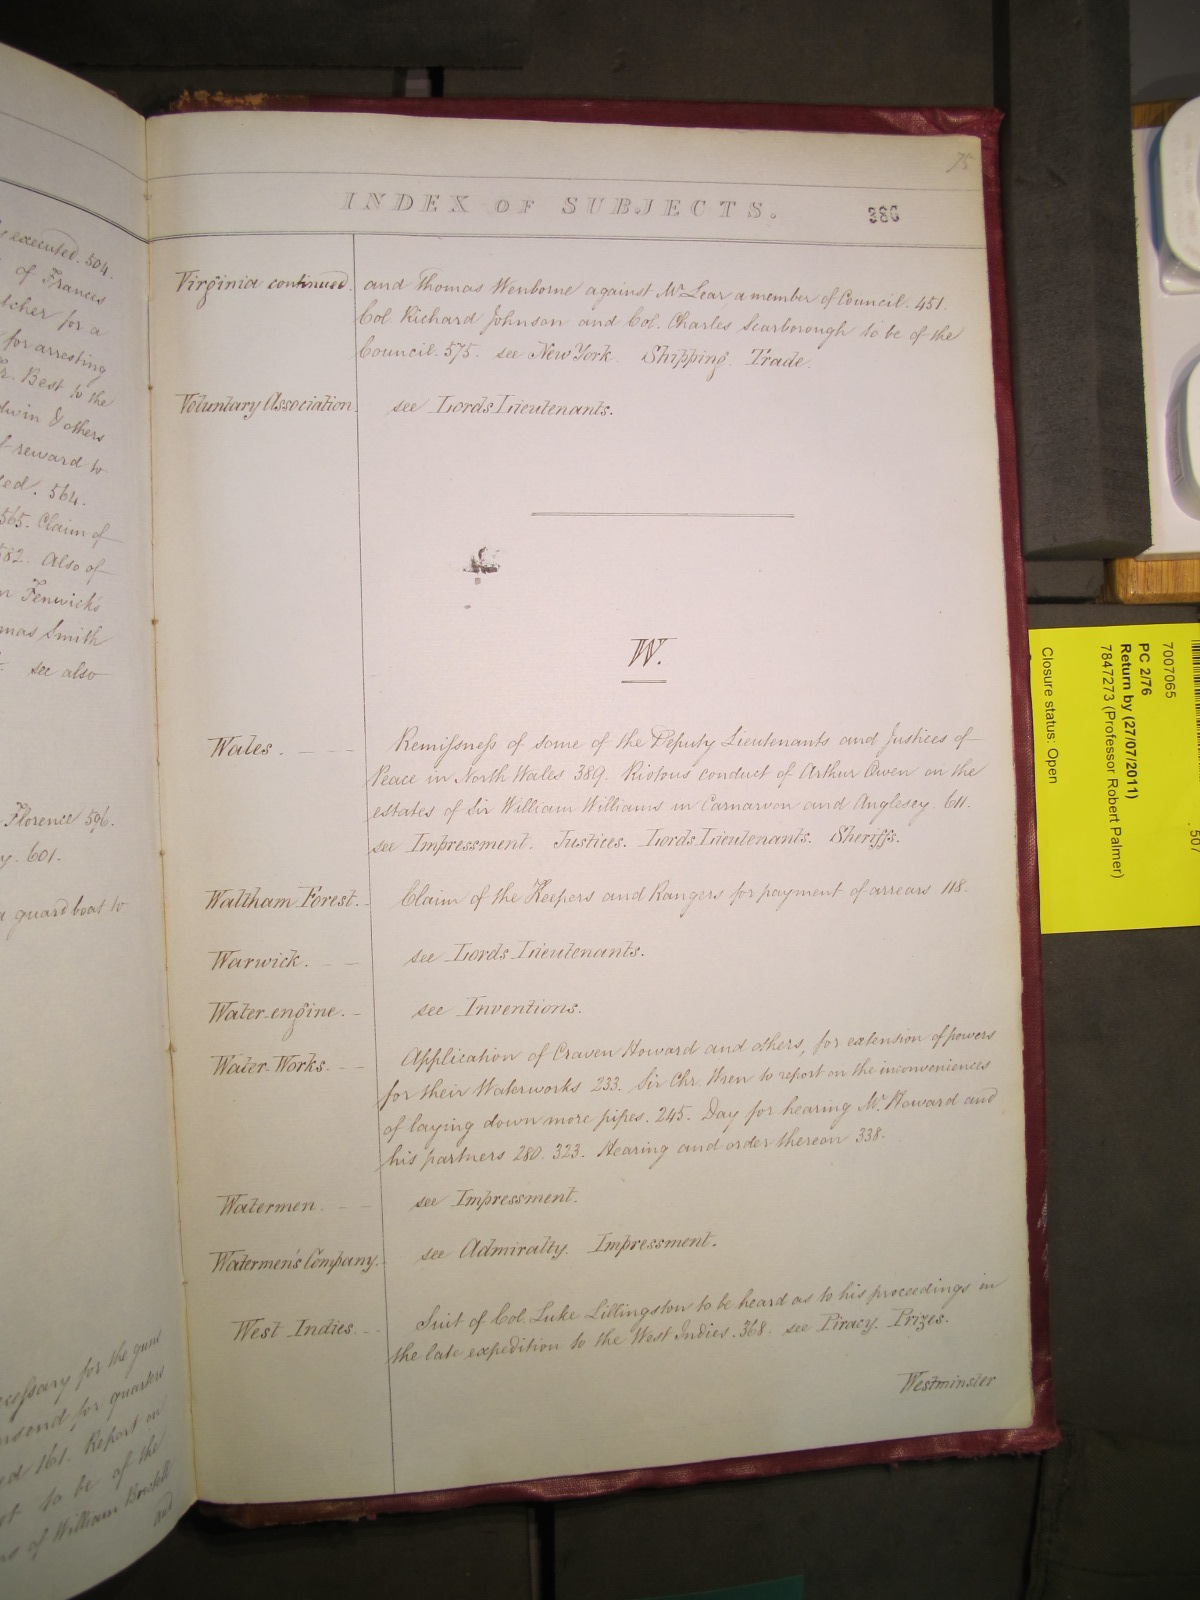 executed. 504.
of Frances
tcher for a
for arresting
Best to the
dwin & others
reward to
ed. 564.
565. Claim of
582. Also of
Fenwick's
mas Smith
see also
Florence 596.
y. 601.
a guard boat to
cessary for the guns
for quarters
161. Report on
to be of the
of William
and
75
INDEX OF SUBJECTS.
386
Virginia continued. and Thomas Wenborne against Mr. Lear a member of Council. 451.
Col. Richard Johnson and Col. Charles Scarborough to be of the
Council. 575. see New York. Shipping. Trade.
Voluntary Association. see Lords Lieutenants.
W.
Wales. Remissness of some of the Deputy Lieutenants and Justices of
Peace in North Wales 389. Riotous conduct of Arthur Owen on the
estates of Sir William Williams in Carnarvon and Anglesey. 611.
see Impressment. Justices. Lords Lieutenants. Sheriffs.
Waltham Forest. Claim of the Keepers and Rangers for payment of arrears 118.
Warwick. see Lords Lieutenants.
Water-engine. see Inventions.
Water-Works. Application of Craven Howard and others, for extension of powers
for their Waterworks 233. Sir Chr. Wren to report on the inconveniences
of laying down more pipes. 245. Day for hearing Mr. Howard and
his partners 280. 323. Hearing and order thereon 338.
Watermen. see Impressment.
Watermen's Company. see Admiralty. Impressment.
West Indies. Suit of Col. Luke Lillingston to be heard as to his proceedings in
the late expedition to the West Indies. 368. see Piracy. Prizes.
Westminster
507
7007065
PC 2/76
Return by (27/07/2011)
7847273 (Professor Robert Palmer)
Closure status: Open